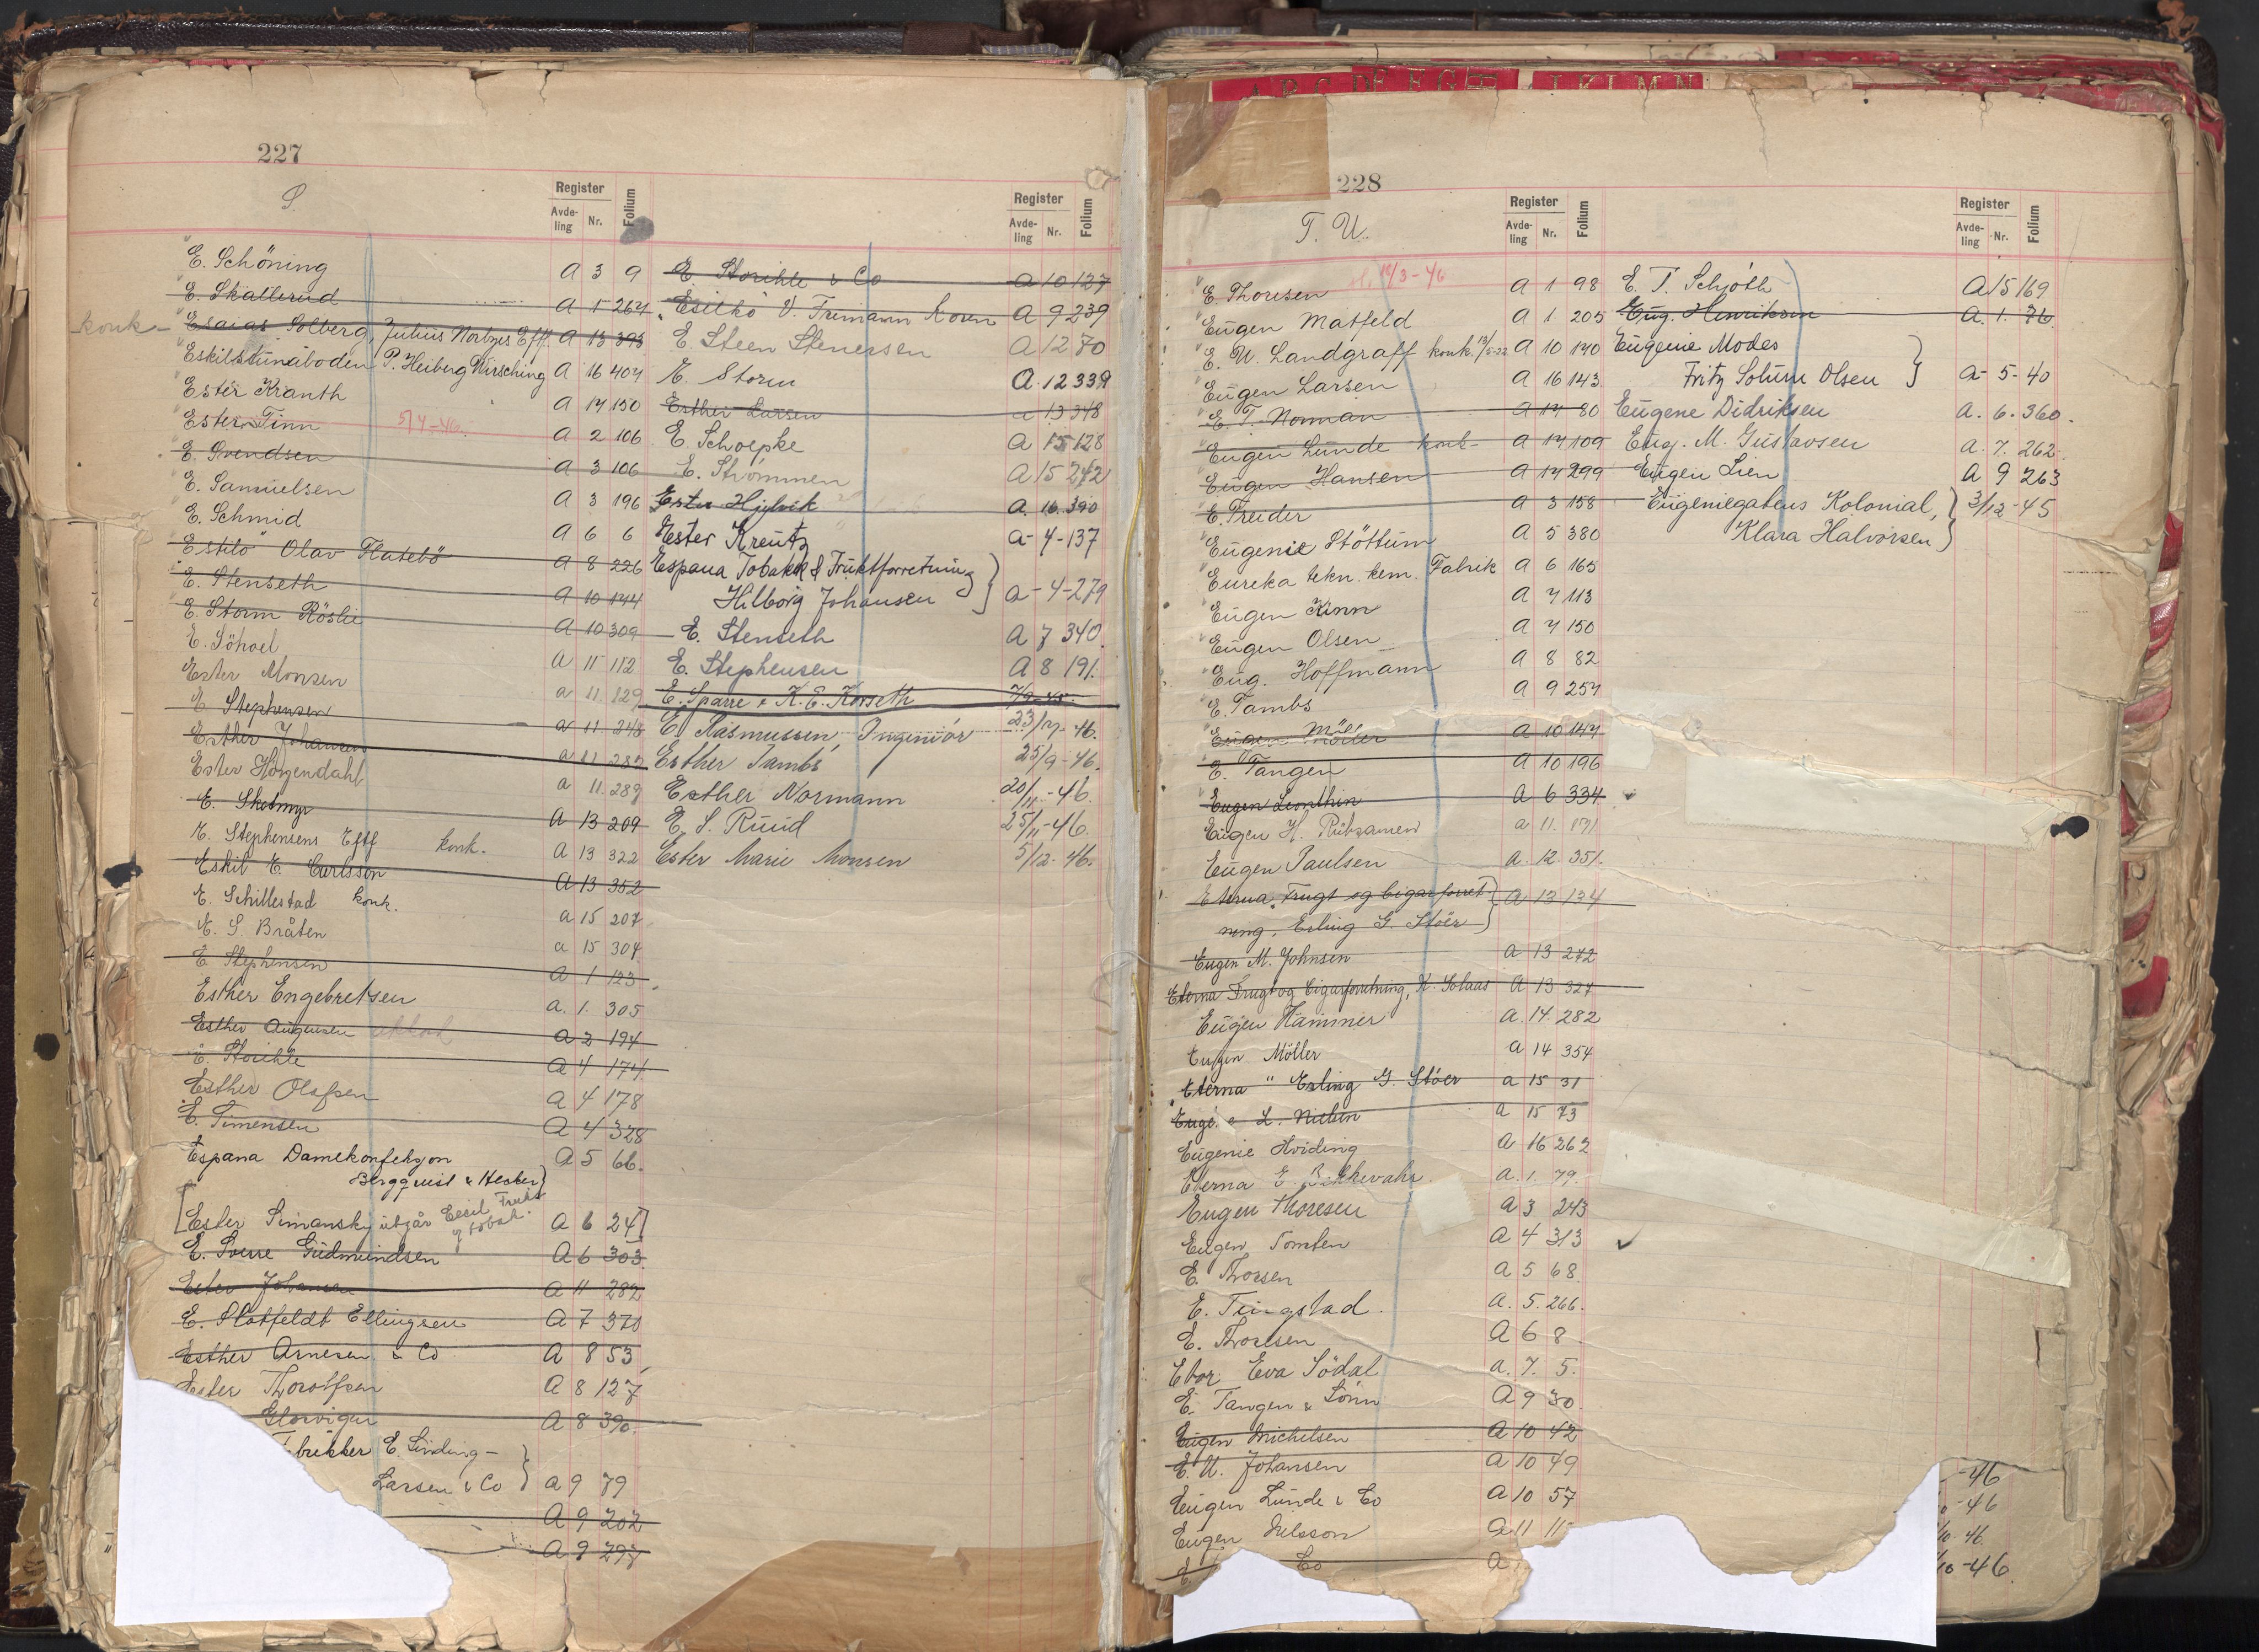 227
S
Register
Avde-
ling
Nr.
Folium
E. Schöning A 3 9
E. Skallerud A 5 264
konk- Esaias Solberg, Julius Norbyes Eff. A 13 393
Eskilstunaboden P. Heiberg Wirsching A 16 404
Ester Kranth A 14 150
Ester Finn 5/4-46. A 2 106
E. Svendsen A 3 106
E. Samuelsen A 3 196
E. Schmid A 6 6
"Estilo" Olav Flatebö A 8 226
E. Stenseth A 10 144
E. Storm Röslie A 10 309
E. Söhoel A 11 112
Ester Monsen a 11. 129
E. Stephensen a 11 248
Esther Johansen a 11 282
Ester Horgendahl a 11. 289
E. Sketmyr A 13 209
E. Stephensens Eftf konk. A 13 322
Eskil E. Carlsson A 13 352
E. Schillestad konk. a 15 207
E. S. Bråten a 15 304
E Stephensen A 1 123
Esther Engebretsen a. 1. 305
Esther Augensen A 2 194
E. Storihle A 4 174
Esther Olafsen A 4 178
E. Simensen A 4 328
Espana Damekonfeksjon A 5 66.
Bergquist & Hecker}
[Ester Simansky utgår Eesil Frukt
og tobak. A 6 24]
E. Sverre Gudmundsen A 6 303.
Ester Johansen A 11 282
E. Platfeldt Ellingsen A 7 370
Esther Arnesen & Co A 8 53
Ester Thorolfsen A 8 127
Glorvigen A 8 390.
E. Sinding-
Larsen & Co} A 9 79
A 9 202
A 9 297
Register
Avde-
ling
Nr.
Folium
E. Storihle & Co A 10 127
Esilko V. Freimann Koren A 9 239
E. Steen Stenersen A 12 70
E. Storm A. 12 339
Esther Larsen a 13 348
E. Schoepke A 15 128
E. Strömmen A 15 242
Ester Hjelvik A. 16. 390
Ester Kreutz a- 4-137
Espana Tobakk & Fruktforretning
Hilborg Johansen} a-4-279
E. Stenseth A 7 340.
E. Stephensen A 8 191.
E. Sparre & K. E. Korseth 7/9-45.
E. Rasmussen, Ingeniör 23/7-46.
Esther Tambs 25/9-46.
Esther Normann 20/11-46.
E. S. Ruud 25/11-46.
Ester Marie Monsen 5/12-46.
228
T. U.
Register
Avde-
ling
Nr.
Folium
E. Thoresen A 1 98
Eugen Matfeld A 1 205
E. U. Landgraff konk. A 10 140
Eugen Larsen A 16 143
E. T. Norman A 14 80
Eugen Lunde konk- A 14 109
Eugen Hansen A 14 299
E. Treider A 3 158
Eugenie Stöttum A 5 380
Eureka tekn. kem. Fabrik A 6 165
Eugen Kinn A 7 113
Eugen Olsen A 7 150
Eug. Hoffmann A 8 82
E. Tambs A 9 254
Eugen Möller A 10 147
E. Tangen A 10 196
Eugen Leonthin A 6 334
Eugen H. Rübsamen a 11. 171
Eugen Paulsen a. 12. 351.
Eterna, Frugt og Cigarforret-
ning, Erling G. Stöer} A 13 134
Eugen M. Johnsen A 13 242
Eterna Frugt og Cigarforretning, K. Solaas A 13 327
Eugen Hammer A. 14. 282
Eugen Möller A 14 354
"Eterna" Erling G. Stöer a 15 31
L. Nielsen a 15 73
Eugenie Hviding A 16 262
Eterna E. a. 1. 79.
Eugen Thoresen A 3 243
Eugen Tomten A 4 313
E. Thorsen A 5 68.
E. Tingstad. A. 5. 266.
E. Thoresen A 6 8
Ebor Eva Södal a. 7. 5.
E. Tangen & Sönn A 9 30.
Eugen Michelsen A 10 42
E. U. Johansen A 10 49
Eugen Lunde & Co A 10 57
Eugen Nilsson A 11 11
E. Co a
Register
Avde-
ling
Nr.
Folium
E. T. Schjöth A 15 169
Eug. Henriksen A. 1. 76.
Eugenie Modes
Fritz Solum Olsen} a- 5-40
Eugene Didriksen A. 6. 360.
Eug. M. Gustavsen A. 7. 262.
Eugen Lien A 9 263
Eugeniegatens Kolonial,
Klara Halvorsen} 3/12-45
-46
-46
/10-46
/10-46.